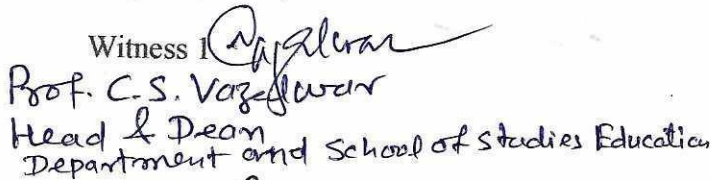 Witness 1
Prof. C. S. Vazalwar
Head & Dean
Department and School of studies Education